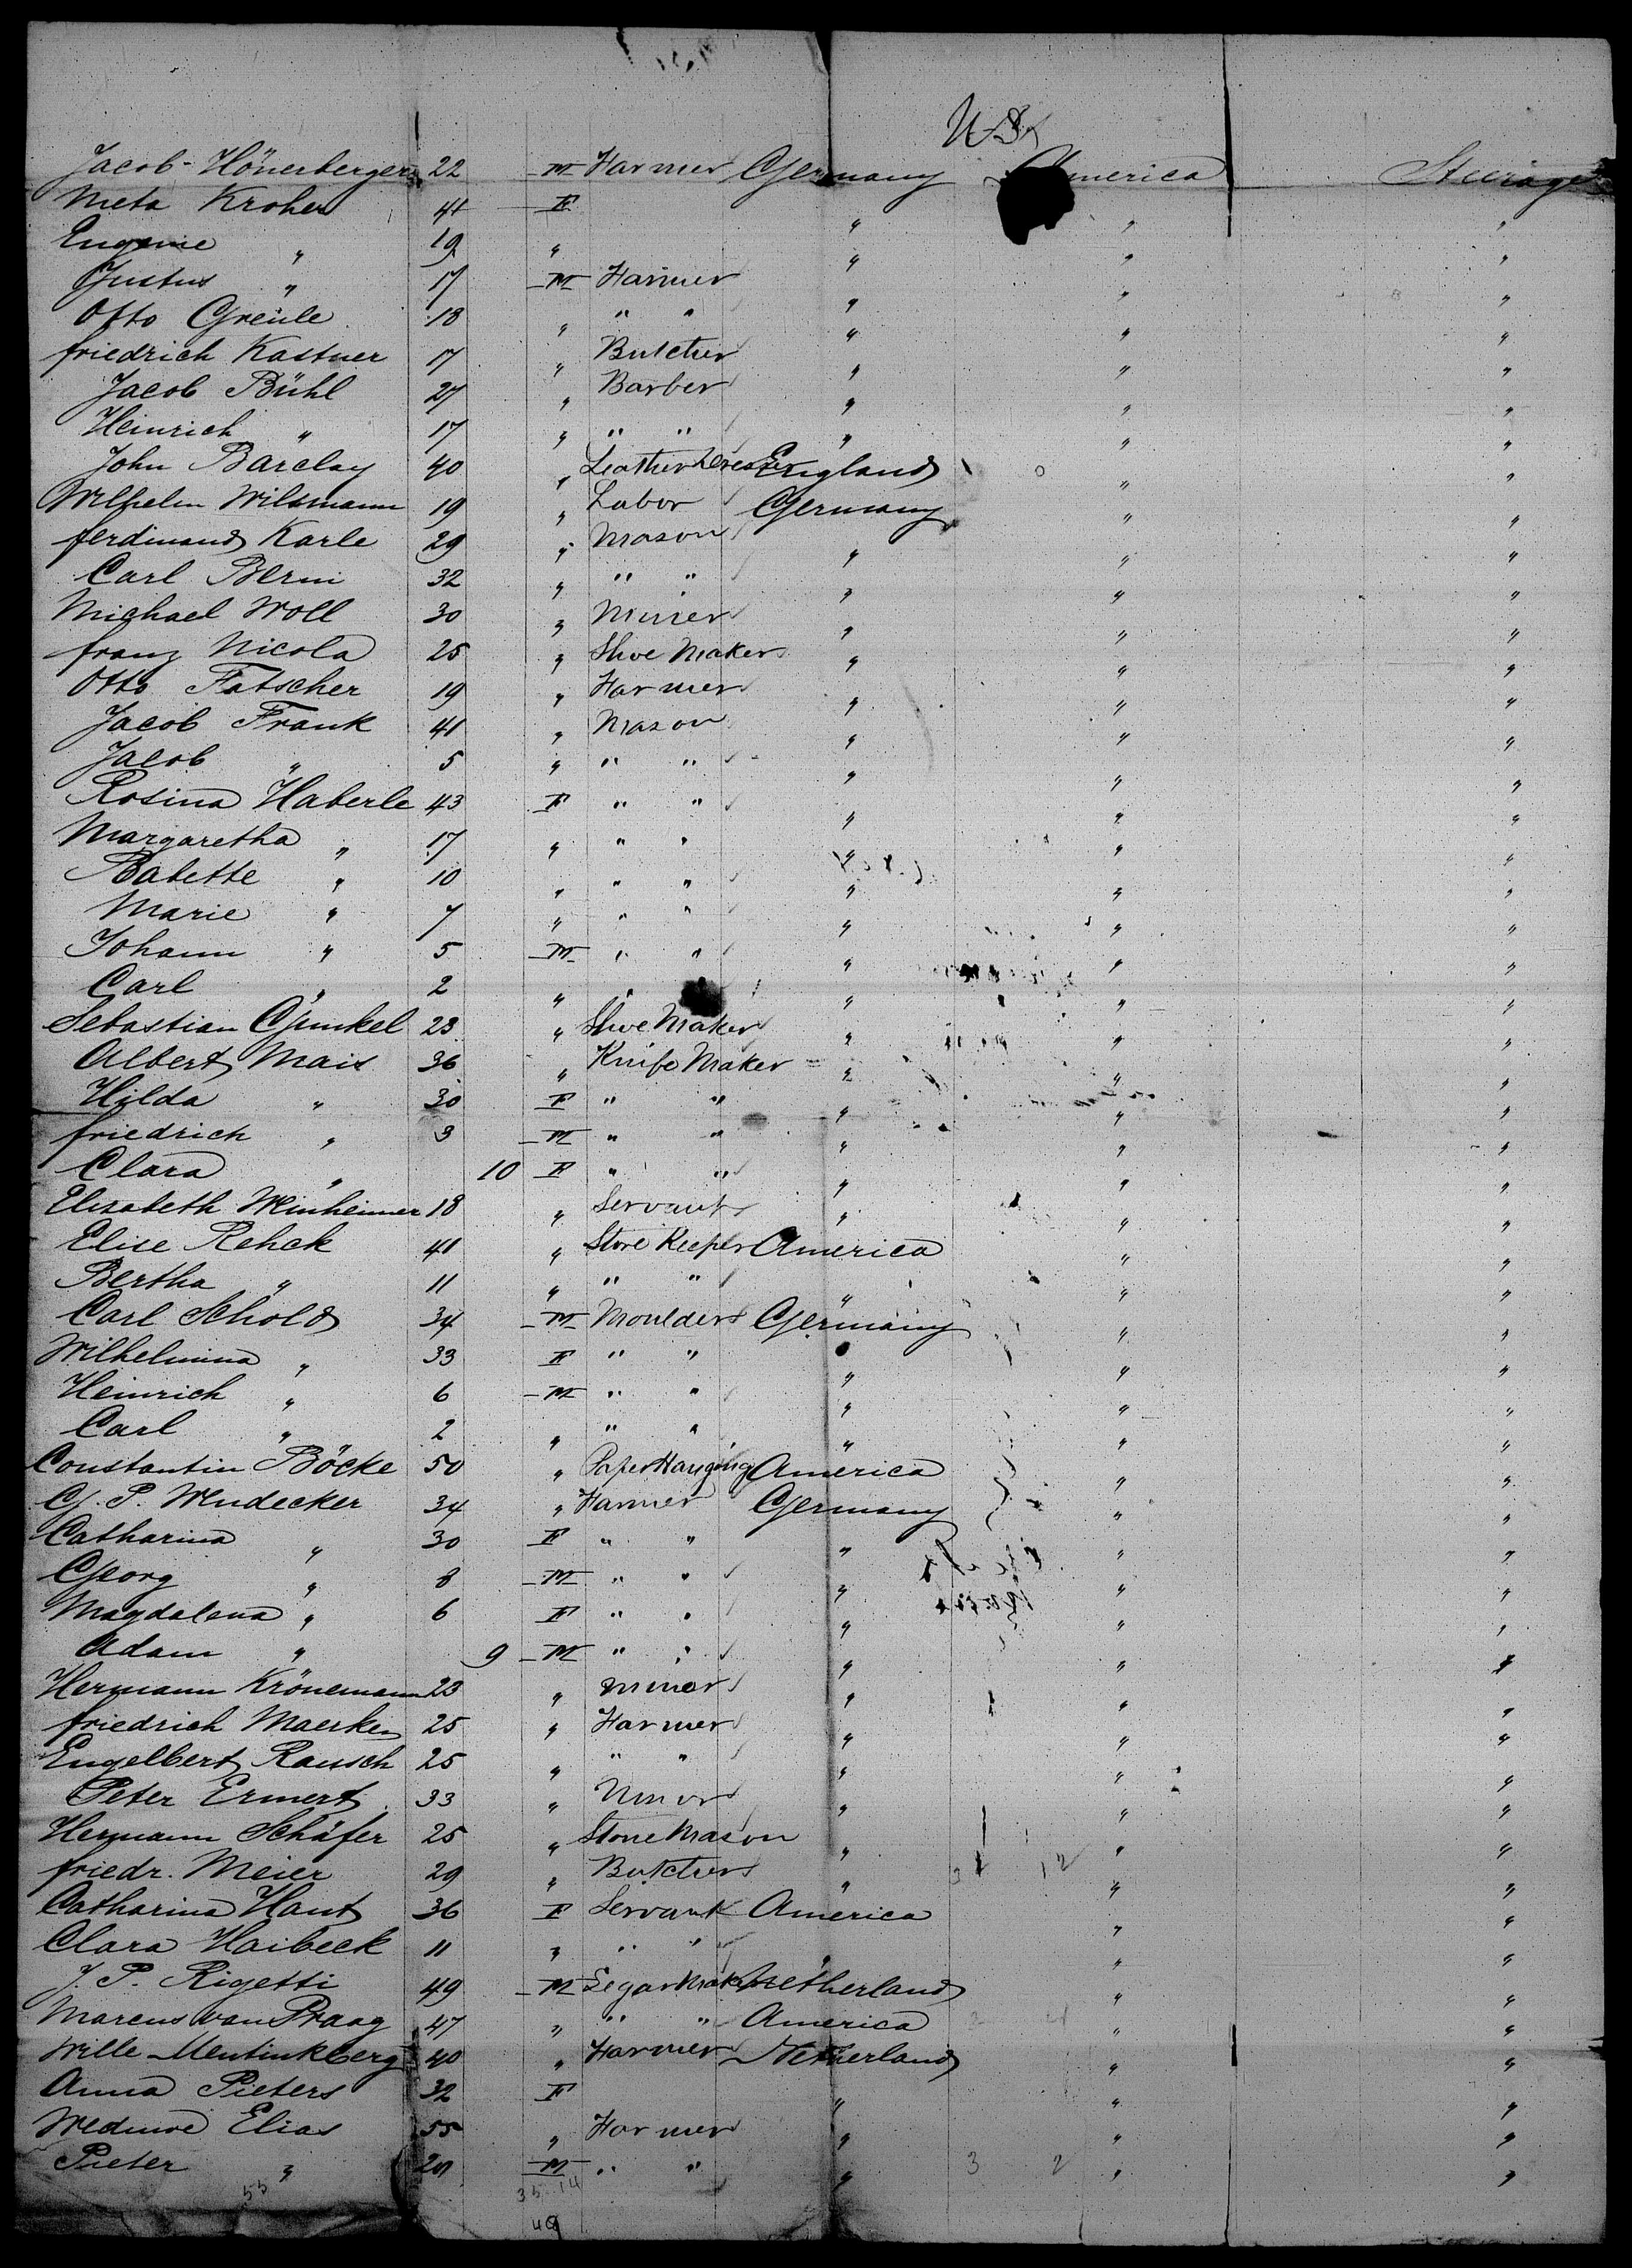 U.S.
Jacob Hönerberger 22 M Farmer Germany America Steerage
Meta Kroher 41 F " " "
Eugenie " 19 " " " "
Justus " 17 M Farmer " " "
Otto Greule 18 " " " " " "
friedrich Kastner 17 " Butcher " " "
Jacob Bühl 27 " Barber " " "
Heinrich " 17 " " " " " "
John Barclay 40 " Leather Dresser England " "
Wilhelm Wilsmann 19 " Labor Germany " "
ferdinand Karle 29 " Mason " " "
Carl Berni 32 " " " " " "
Michael Woll 30 " Miner " " "
franz Nicola 25 " Shoe Maker " " "
Otto Fatscher 19 " Farmer " " "
Jacob Frank 41 " Mason " " "
Jacob " 5 " " " " " "
Rosina Haberle 43 F " " " " "
Margaretha " 17 " " " " " "
Babette " 10 " " " " " "
Marie " 7 " " " " " "
Johann " 5 M " " " " "
Carl " 2 " " " " "
Sebastian Gunkel 23 " Shoe Maker " " "
Albert Mais 36 " Knife Maker " " "
Hilda " 30 F " " " " "
friedrich " 3 M " " " " "
Clara " 10 F " " " " "
Elisabeth Weinheimer 18 " Servant " " "
Elise Rehak 41 " Store Keeper America " "
Bertha " 11 " " " " " "
Carl Schold 34 M Moulder Germany " "
Wilhelmina " 33 F " " " " "
Heinrich " 6 M " " " " "
Carl " 2 " " " " " "
Constantin Böcke 50 " Paper Hanging America " "
G. P. Wendecker 34 " Farmer Germany " "
Catharina " 30 F " " " " "
Georg " 8 M " " " " "
Magdalena " 6 F " " " " "
Adam " 9 M " " " " "
Hermann Krönemann 23 " Miner " " "
friedrich Maerken 25 " Farmer " " "
Engelbert Rausch 25 " " " " " "
Peter Ermert 33 " Miner " " "
Hermann Schäfer 25 " Stone Mason " " "
friedr. Meier 29 " Butcher " 3 12 " "
Catharina Haut 36 F Servant America " "
Clara Haibeck 11 " " " " " "
J. P. Rigetti 49 M Segar Maker Netherland " "
Marcus van Praag 47 " " " America " "
Wille Mentinkberg 40 " Farmer Netherland " "
Anna Pieters 32 F " " "
Weduwe Elias 55 " Farmer " " "
Pieter " 20 M " " " 3 2 " "
55 35 14
49